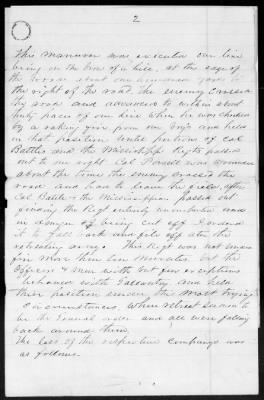 2
This manuver was executed our line
being on the brow of a hill, at the edge of
the woods about one hundred yards to
the right of the road. The enemy crossed
the road and advanced to within about
forty paces of our line when he was checked
by a raking fire from our Brig and held
in that position until portion of Col
Battles and the Mississippi Regts passed
out to our right Col Powell was wounded
about the time the enemy crossed the
road and had to leave the field, after
Col Battle & the Mississippians passed out
finding the Regt entirely unsupported and
in danger of being cut off I ordered
it to fall back and file off after the
retreating army. This Regt was not under
fire more than ten Minutes but the
Officers & men with but few exceptions
behaved with Gallantry and held
their position under the most trying
Circumstances, When retreat seemed to
be the General order and all were falling
back around them.
The loss of the respective Companys was
as follows.